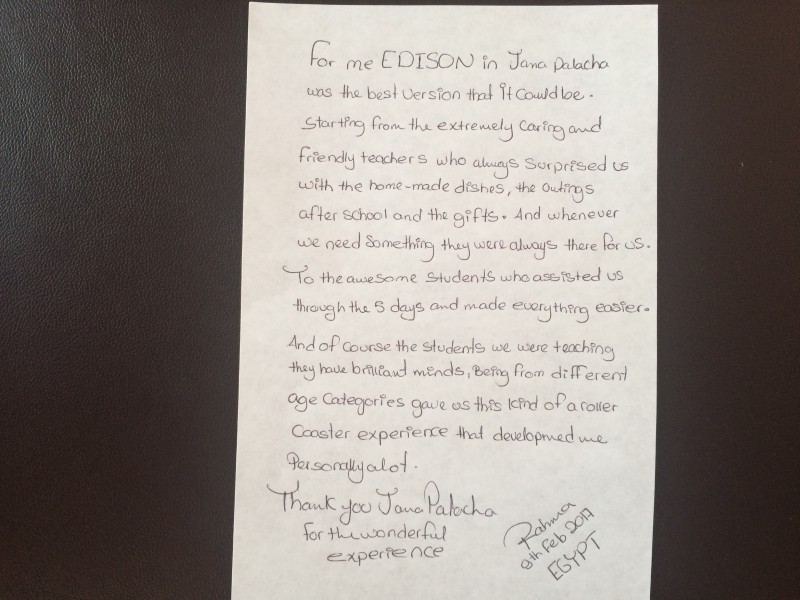 For me EDISON in Jana Palacha
was the best version that it could be.
starting from the extremely caring and
friendly teachers who always surprised us
with the home-made dishes, the outings
after school and the gifts. And whenever
we need something they were always there for us.
To the awesome students who assisted us
through the 5 days and made everything easier.
And of course the students we were teaching
they have brilliant minds, Being from different
age categories gave us this kind of a roller
Coaster experience that developmed me
Personally a lot.
Thank you Jana Palacha
for the wonderful
experience
Rahma
8th Feb 2017
EGYPT